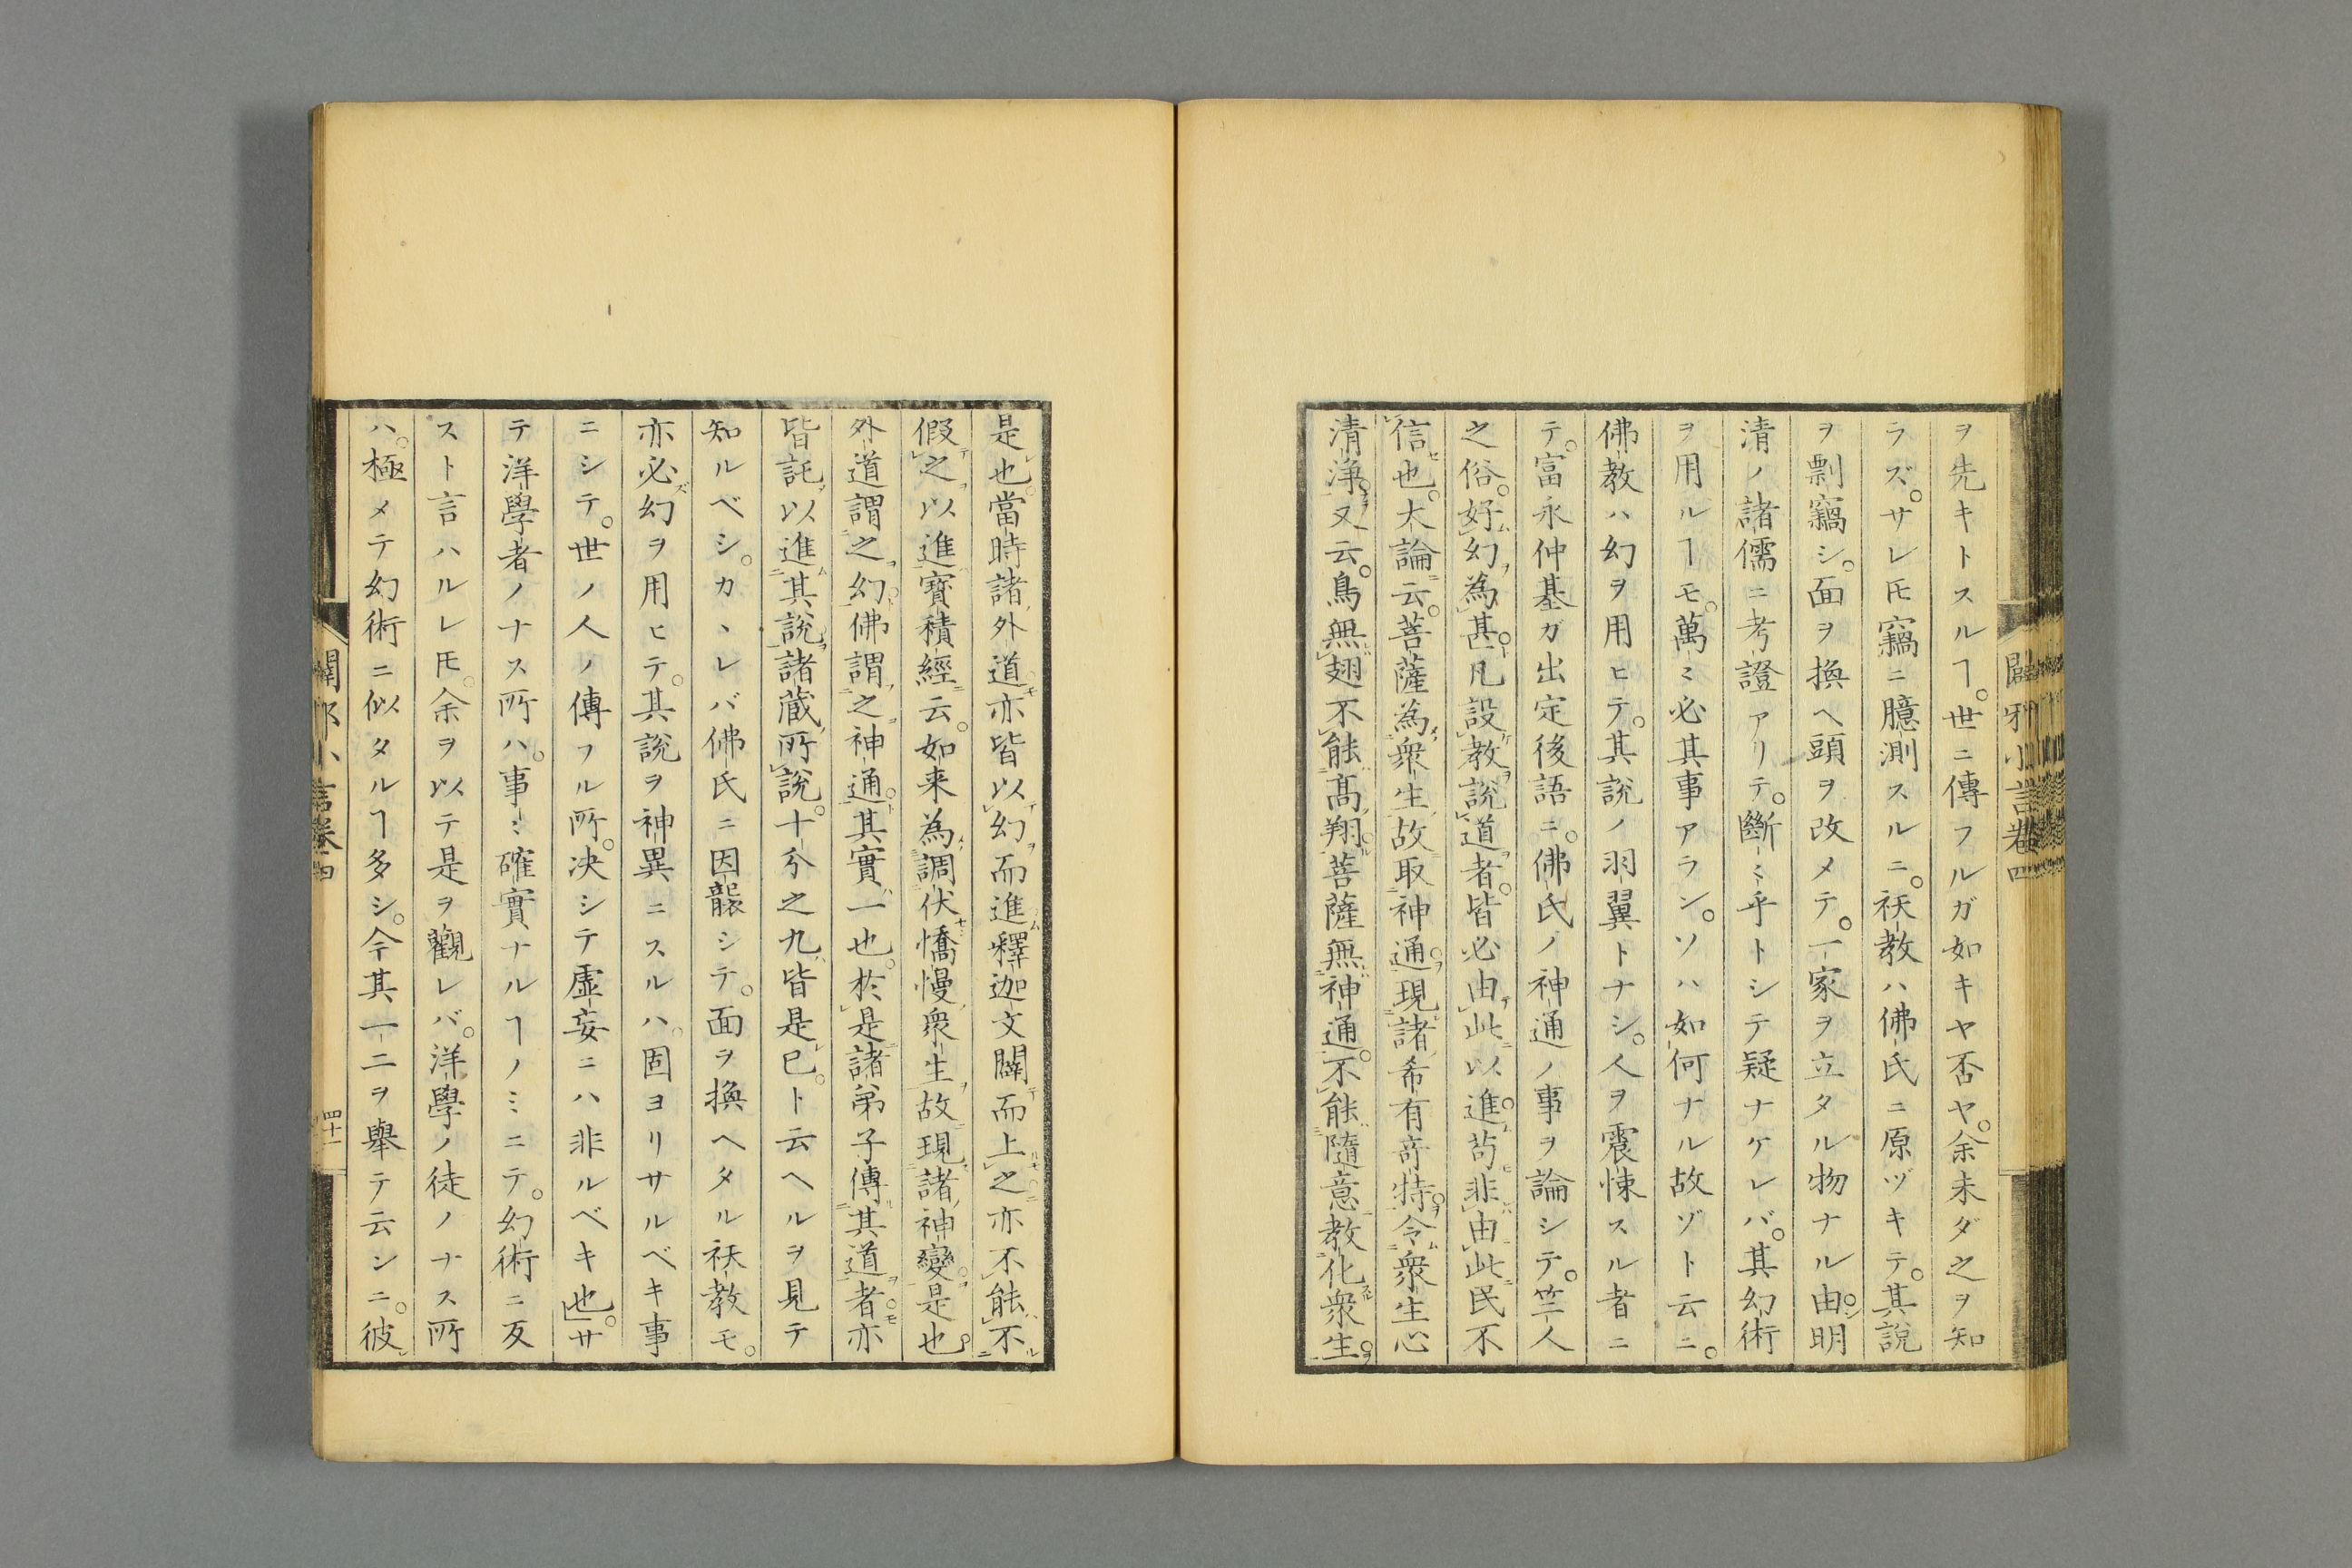 闢邪小言卷四
ヲ先キトスルヿ。世ニ傳フルガ如キヤ否ヤ。余未ダ之ヲ知
ラズ。サレ𪜈竊ニ臆測スルニ。祅教ハ佛氏ニ原ヅキテ。其說
ヲ剽竊シ。面ヲ換ヘ頭ヲ改メテ。一家ヲ立タル物ナル由。明
清ノ諸儒ニ考證アリテ。斷〻乎トシテ疑ナケレバ。其幻術
ヲ用ルヿモ。萬〻必其事アラン。ソハ如何ナル故ゾト云ニ。
佛教ハ幻ヲ用ヒテ。其說ノ羽翼トナシ。人ヲ震悚スル者ニ
テ。富永仲基ガ出定後語ニ。佛氏ノ神通ノ事ヲ論シテ。竺人
之俗。好幻為甚。凡設教說道者。皆必由此以進。苟非由此民不
信也。大論云。菩薩為衆生故取神通。現諸希有竒特。令衆生心
清淨。又云。鳥無翅不能髙翔。菩薩無神通。不能隨意教化衆生。
是也。當時諸外道亦皆以幻而進釋迦文闢而上之亦不能不
假之以進寳積經云。如来為調伏憍慢衆生故現諸神變是也。
外道謂之幻佛謂之神通。其實一也。於是諸弟子傳其道者亦
皆託以進其說諸蔵所說。十分之九皆是已。ト云ヘルヲ見テ
知ルベシ。カヽレバ佛氏ニ因襲シテ。面ヲ換ヘタル祅教モ。
亦必幻ヲ用ヒテ。其說ヲ神異ニスルハ。固ヨリサルベキ事
ニシテ。世ノ人ノ傳フル所。决シテ虛妄ニハ非ルベキ也。サ
テ洋學者ノナス所ハ。事〻確實ナルヿノミニテ。幻術ニ反
スト言ハルレ𪜈。余ヲ以テ是ヲ觀レバ。洋學ノ徒ノナス所
ハ。極メテ幻術ニ似タルヿ多シ。今其一二ヲ舉テ云シニ。彼
闢邪小言卷四
四十一